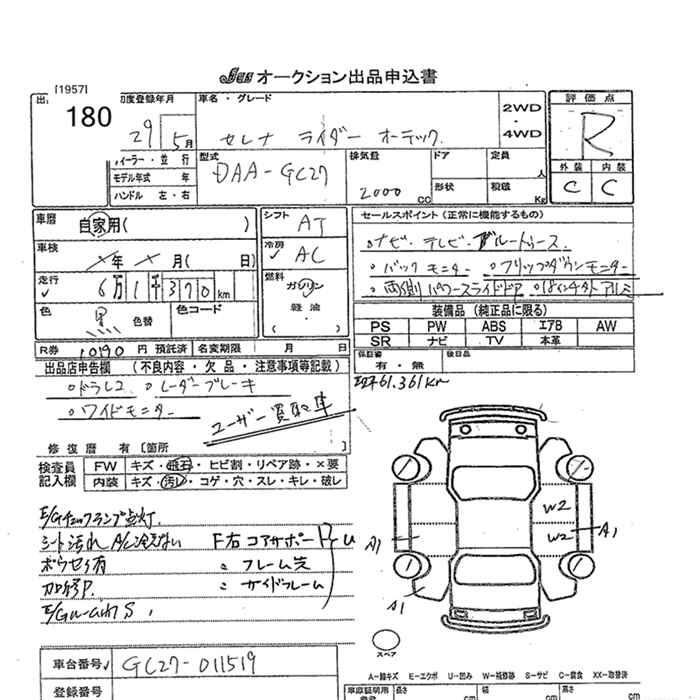 JUS オークション出品申込書
[1957]
180
初度登録年月
29 5月
車名・グレード
セレナ ライダー オーテック
2WD
・
4WD
評価点
R
外装 内装
C C
ィーラー・並 行
モデル年式 年
ハンドル 左・右
型式
DAA-GC27
排気量
2000 CC
ドア
形状
定員 人
積載 Kg
車歴
自家用( )
車検
年 月( 日)
走行
6万1千370km
色
黒 色替
色コード
シフト
AT
冷房
AC
燃料
ガソリン
軽油
( )
セールスポイント (正常に機能するもの)
ナビ・テレビ・ブルートゥース
バックモニター フリップダウンモニター
両側パワースライドドア 18インチ外アルミ
装備品 (純正品に限る)
PS PW ABS エアB AW
SR ナビ TV 本革
R券 10190 円 預託済 名変期限 月 日
保証書 有・無
後日品
出品店申告欄 (不良内容・欠品・注意事項等記載)
ドラレコ レーダーブレーキ
ワイドモニター
ユーザー買取車
61,361km
修復歴 有 [箇所 ]
検査員
記入欄
FW キズ・飛石・ヒビ割・リペア跡・×要
内装 キズ・汚れ・コゲ・穴・スレ・キレ・破レ
E/Gチェックランプ点灯.
シート汚れ A/C冷えない
F右コアサポート
フレーム先
サイドフレーム
W2
W2
A1
A1
A1
スペア
車台番号
GC27-011519
登録番号
A-線キズ E-エクボ U-凹み W-補修跡 S-サビ C-腐食 XX-取替済
車庫証明用
長さ cm
幅 cm
高さ cm